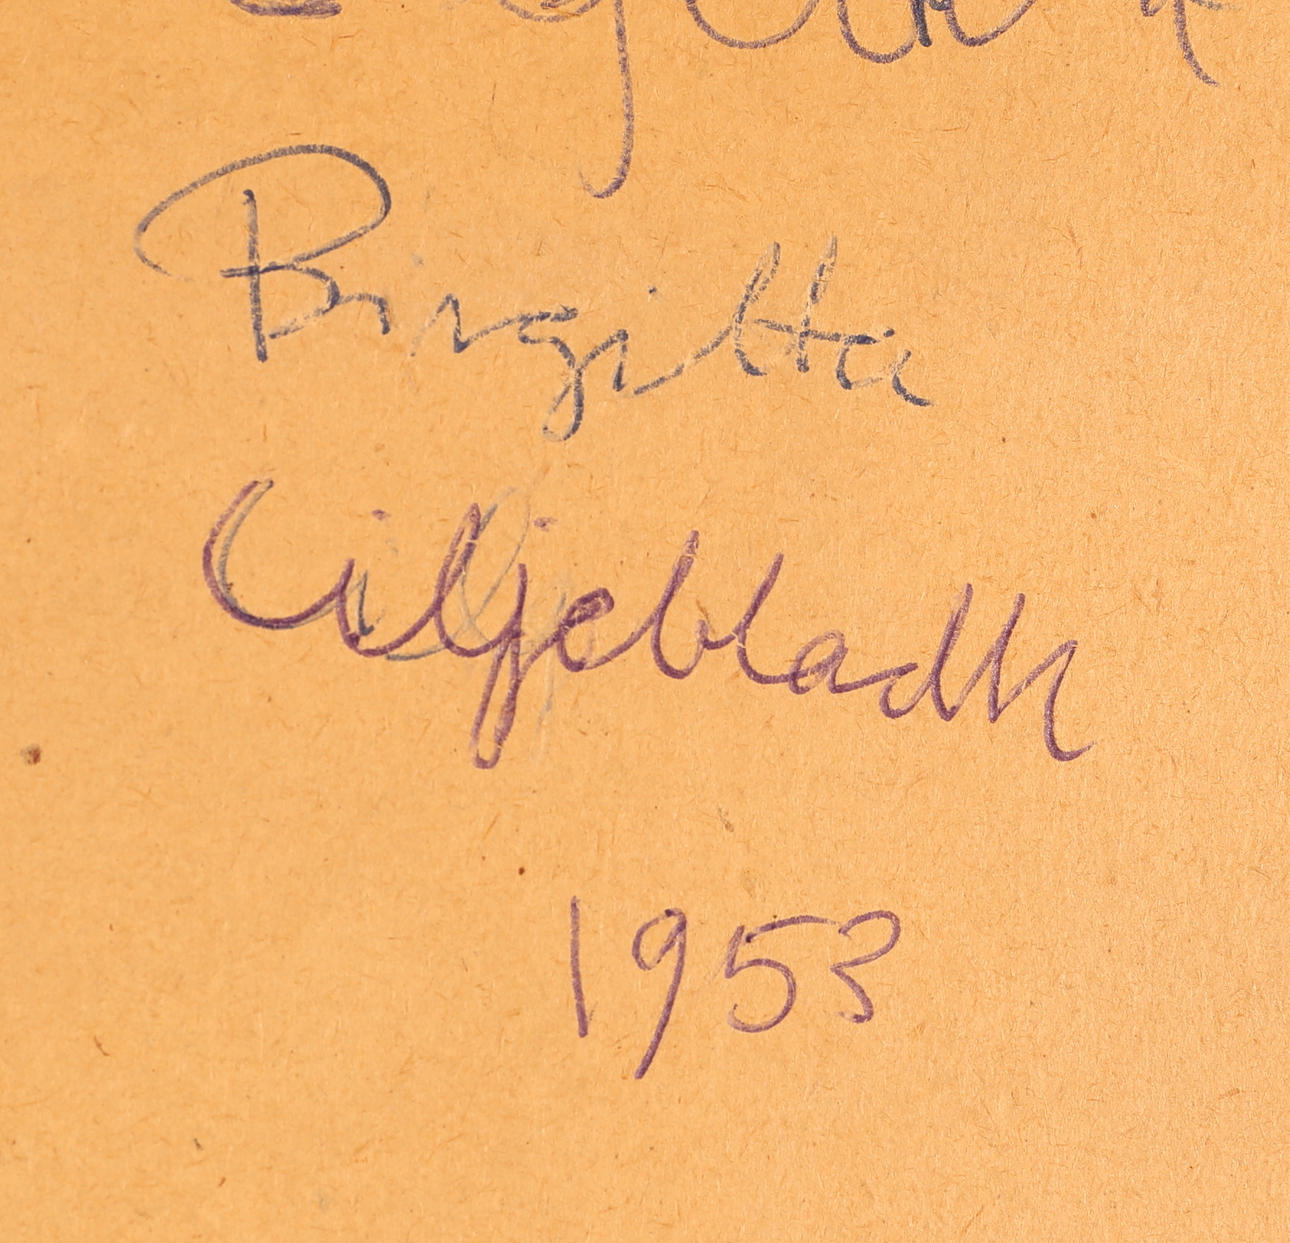 Birgitta
Liljebladh
1953